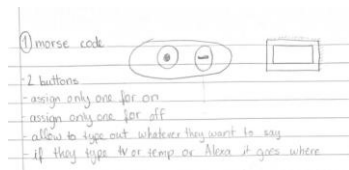 ① morse code
- 2 buttons
- assign only one for on
- assign only one for off
- allow to type out whatever they want to say
- if they type tv or temp or Alexa it goes where